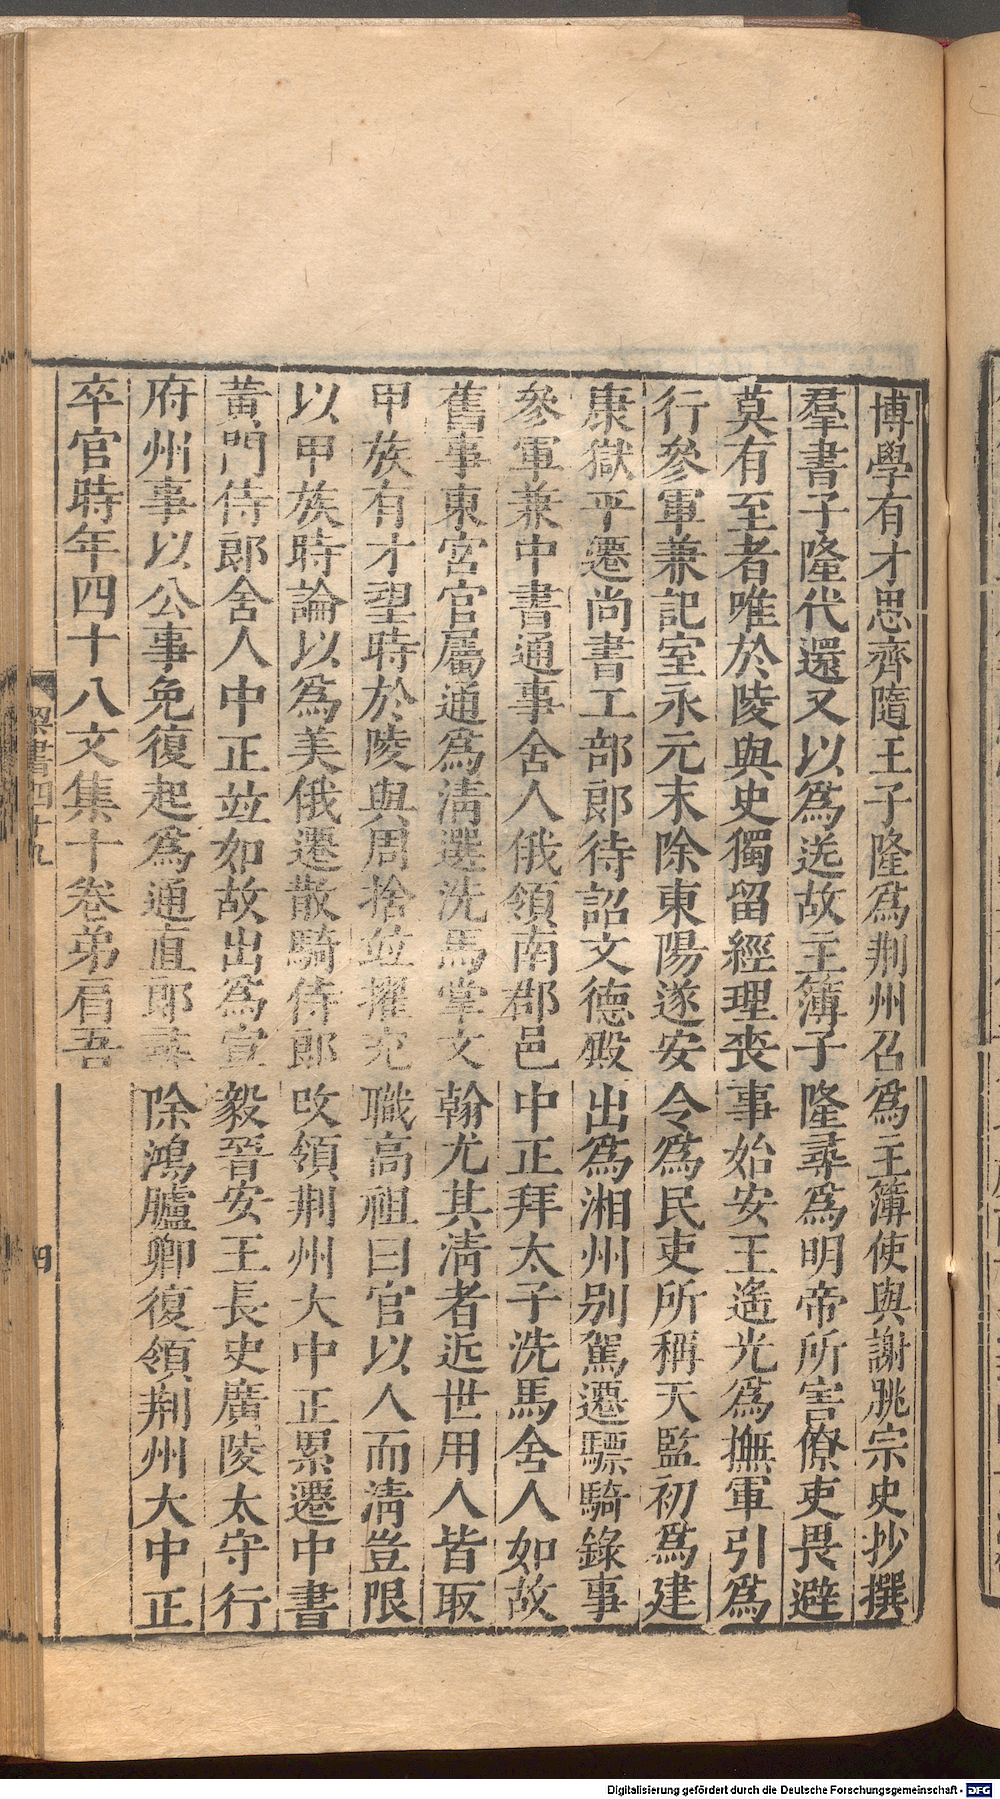 博學有才思齊隨王子隆爲荆州召爲主簿使與謝朓宗史抄撰
羣書子隆代還又以爲送故主簿子隆尋爲明帝所害僚吏畏避
莫有至者唯於陵與史獨留經理喪事始安王遙光爲撫軍引爲
行參軍兼記室永元末除東陽遂安令爲民吏所稱天監初爲建
康獄平遷尚書工部郎待詔文德殿出爲湘州别駕遷驃騎錄事
參軍兼中書通事舍人俄領南郡邑中正拜太子洗馬舍人如故
舊事東宮官屬通爲淸選洗馬掌文翰尤其淸者近世用人皆取
甲族有才望時於陵與周捨竝擢充職高祖曰官以人而淸豈限
以甲族時論以爲美俄遷散騎侍郎改領荆州大中正累遷中書
黃門侍郎舍人中正竝如故出爲宣毅晉安王長史廣陵太守行
府州事以公事免復起爲通直郎尋除鴻臚卿復領荆州大中正
卒官時年四十八文集十卷弟肩吾
梁書四十九
四
Digitalisierung gefördert durch die Deutsche Forschungsgemeinschaft - DFG